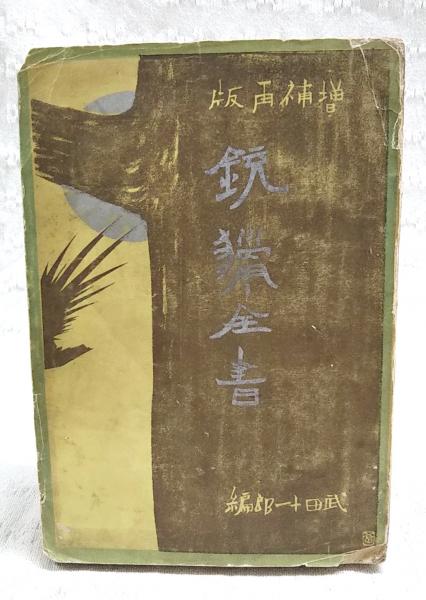 増補再版
銃猟全書
武田十一郎編